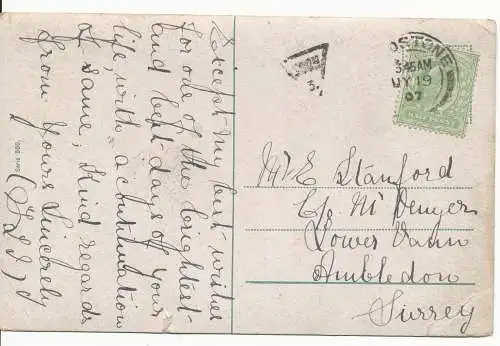 Except my best wishes
for one of the brightest
and best days of your
life, with a continuation
of same, Kind regards
from Yours Sincerely
OSTONE
3.45AM
MY 19
07
HALF PENNY
Mr E Stanford
C/o Mr Denyer
Lower Vann
Ambledon
Surrey